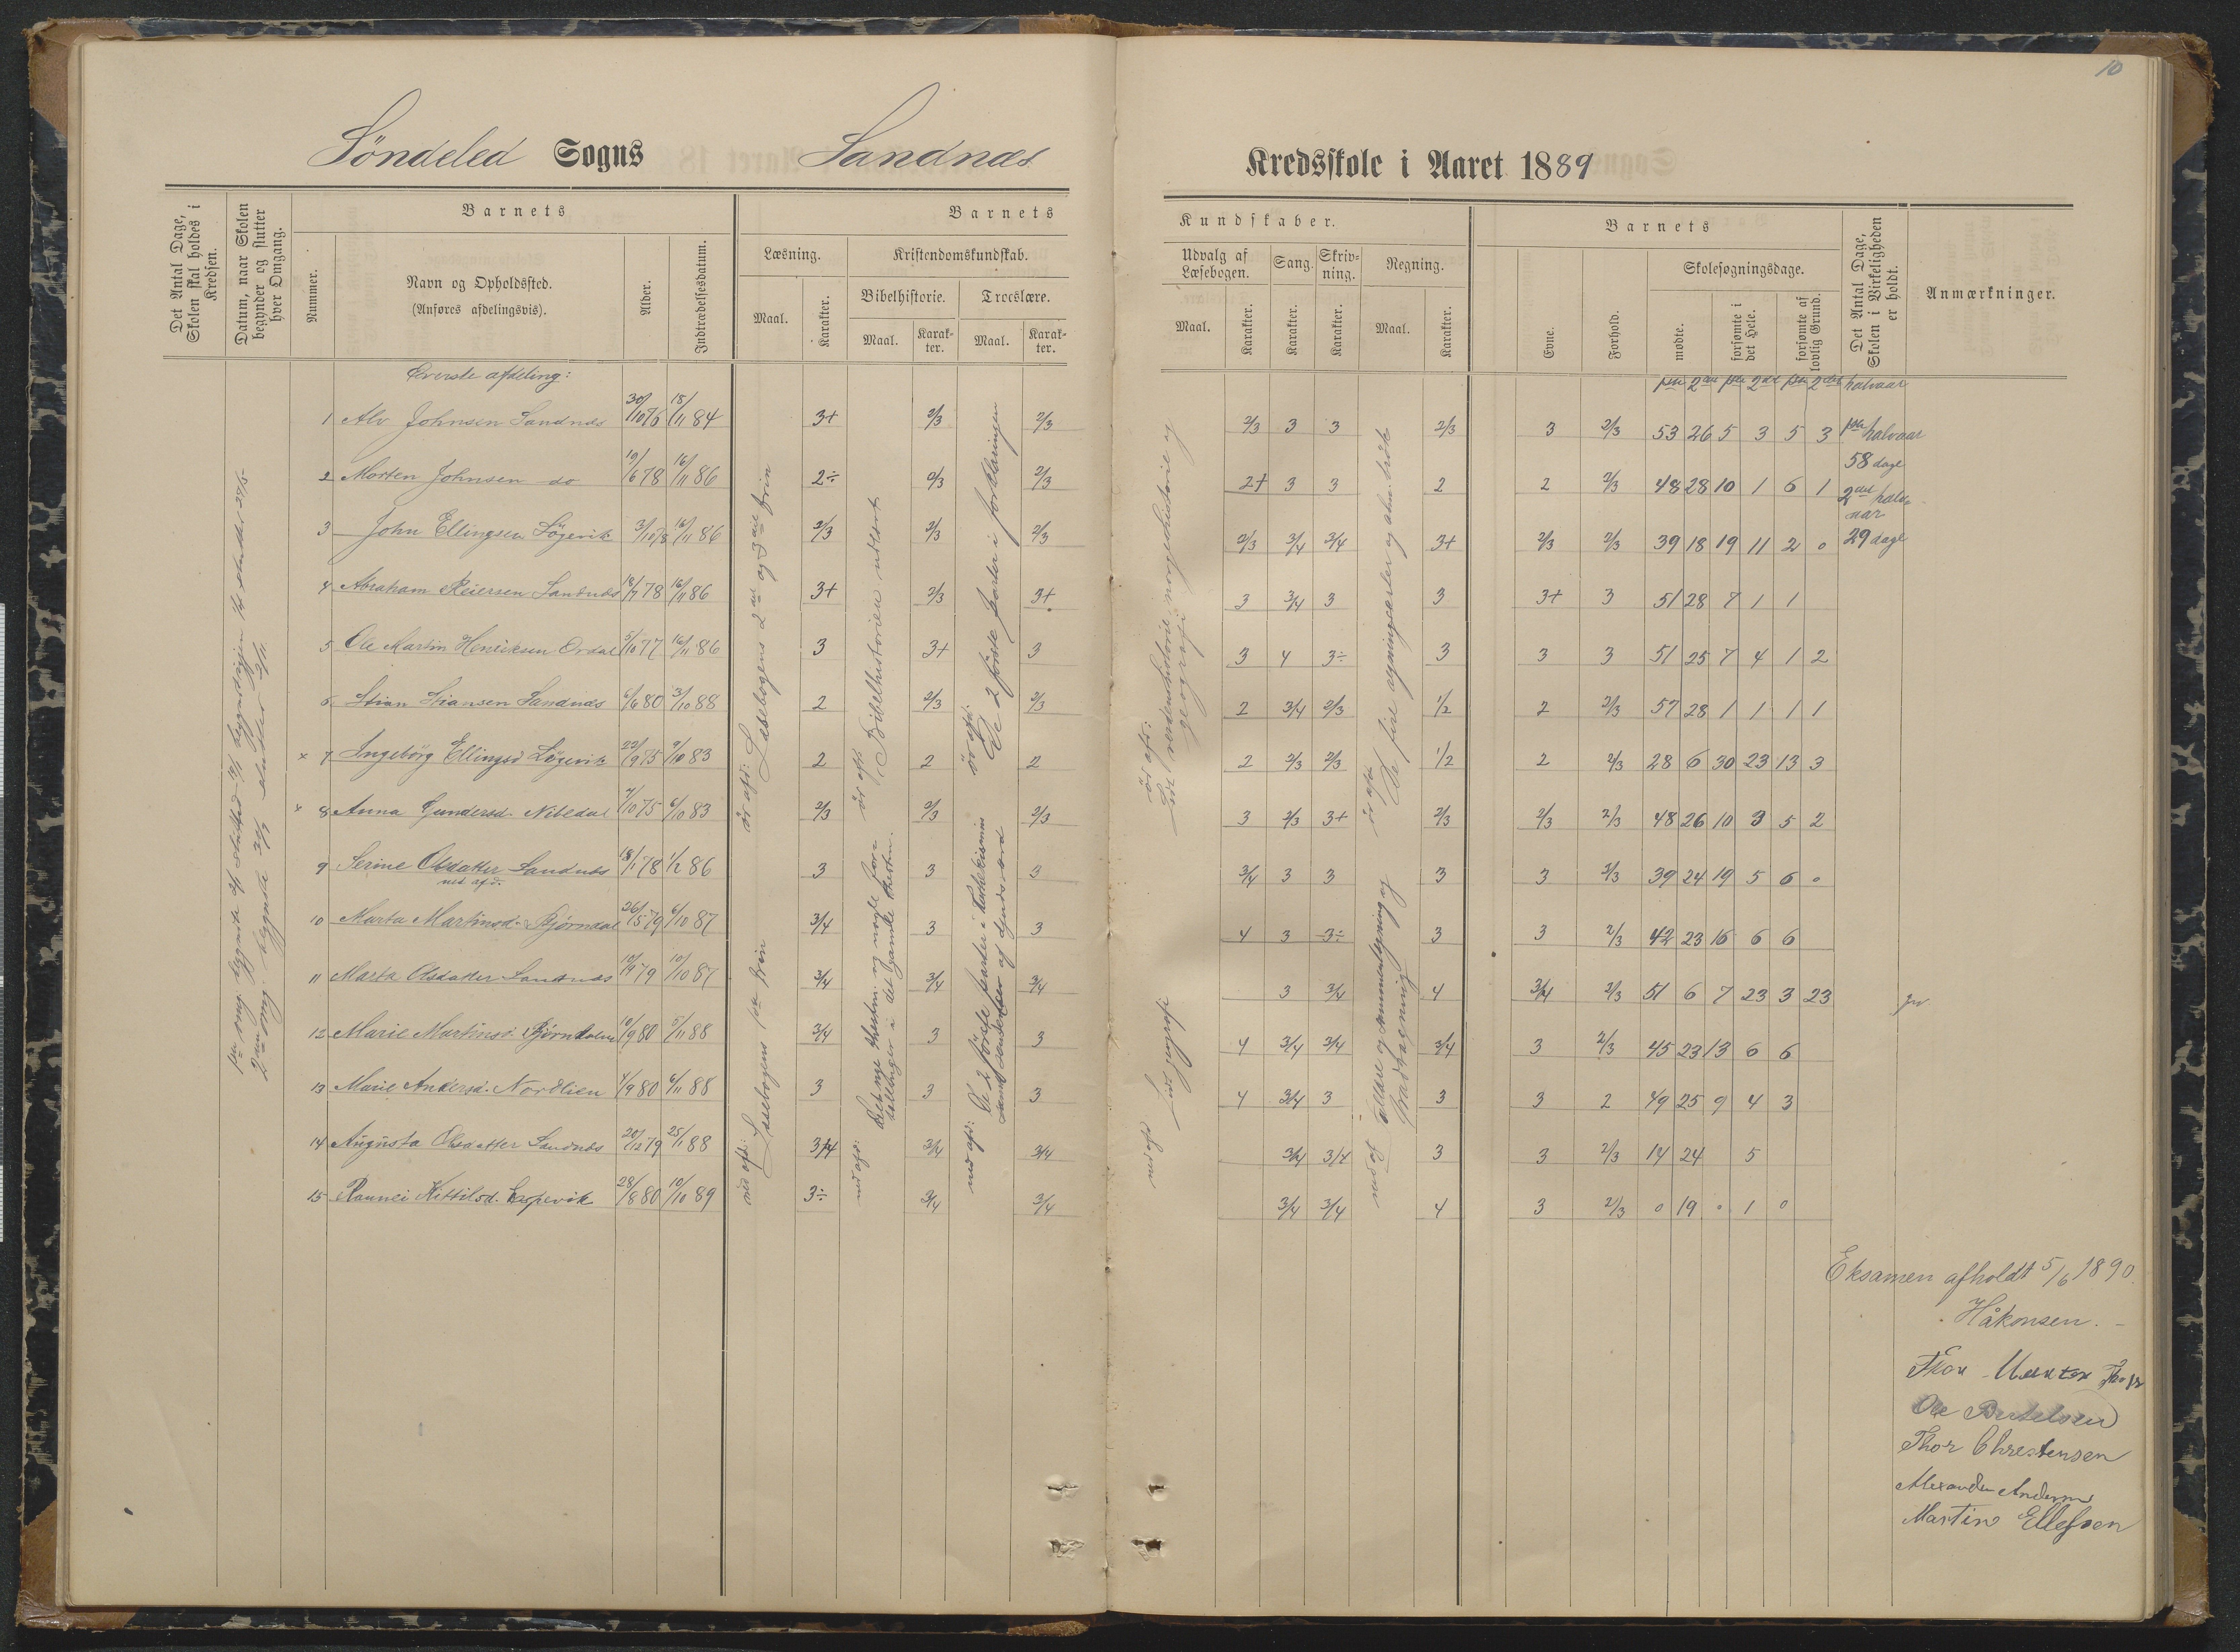 10
Söndeled Sogns Sandnæs
Kredsskole i Aaret 1889
Det Antal Dage, Skolen skal holdes i Kredsen.
Datum, naar Skolen begynder og slutter hver Omgang.
Barnets
Nummer.
Navn og Opholdssted.
(Anføres afdelingsvis).
Alder.
Indtrædelsesdatum.
Barnets
Læsning.
Maal.
Karakter.
Kristendomskundskab.
Bibelhistorie.
Maal.
Karakter.
Troeslære.
Maal.
Karakter.
Kundskaber.
Udvalg af Læsebogen.
Maal.
Karakter.
Sang.
Karakter.
Skrivning.
Karakter.
Regning.
Maal.
Karakter.
Barnets
Evne.
Forhold.
Skolesøgningsdage.
mødte.
forsømte i det Hele.
forsømte af lovlig Grund.
Det Antal Dage, Skolen i Virkeligheden er holdt.
Anmærkninger.
Øverste afdeling:
1ste 2det 1ste 2det 1ste 2det halvaar
1 Alv Johnsen Sandnæs 30/10 76 18/11 84 3+ 2/3 2/3 2/3 3 3 2/3 3 2/3 53 26 5 3 5 3
2 Morten Johnsen do 19/6 78 16/11 86 2÷ 2/3 2/3 2+ 3 3 2 2 2/3 48 28 10 1 6 1
3 John Ellingsen Lögevik 3/10 78 16/11 86 2/3 2/3 2/3 2/3 3/4 3/4 3+ 2/3 2/3 39 18 19 11 2 0
4 Abraham Reiersen Sandnæs 18/7 78 16/11 86 3+ 2/3 3+ 3 3/4 3 3 3+ 3 51 28 7 1 1
5 Ole Martin Henriksen Ordal 5/10 77 16/11 86 3 3+ 3 3 4 3÷ 3 3 3 51 25 7 4 1 2
6 Stian Stiansen Sandnæs 6/6 80 3/10 88 2 2/3 2/3 2 3/4 2/3 1/2 2 2/3 57 28 1 1 1 1
× 7 Ingebörg Ellingsd Lögevik 22/9 75 9/10 83 2 2 2 2 2/3 2/3 1/2 2 2/3 28 6 30 23 13 3
× 8 Anna Gundersd. Nibedal 7/10 75 6/10 83 2/3 2/3 2/3 3 2/3 3+ 2/3 2/3 2/3 48 26 10 3 5 2
9 Serine Olsdatter Sandnæs 18/1 78 1/2 86 3 3 3 3/4 3 3 3 3 2/3 39 24 19 5 6 0
ned afd.
10 Marta Martinsd. Bjørndal 26/5 79 6/10 87 3/4 3 3 4 3 3÷ 3 3 2/3 42 23 16 6 6
11 Marta Olsdatter Sandnæs 10/9 79 10/10 87 3/4 3/4 3/4 3 3/4 4 3/4 2/3 51 6 7 23 3 23
12 Marie Martinsd. 10/9 80 5/11 88 3/4 3 3 4 3/4 3/4 3/4 3 2/3 45 23 13 6 6
13 Marie Andersd. Nordlien 4/9 80 6/11 88 3 3 3 4 3/4 3 3 3 2 49 25 9 4 3
14 Augusta Olsdatter Sandnæs 20/12 79 25/1 88 3/4 3/4 3/4 3/4 3/4 3 3 2/3 14 24 5
15 Rannei Kittilsd. Lespevik 28/8 80 10/10 89 3÷ 3/4 3/4 3/4 3/4 4 3 2/3 0 19 0 1 0
1ste halvaar
58 dage
2det halvaar
29 dage
1ste omg. begyndte
2den omg. begyndte
øv afd: Læsebogens 2det og 3die trin
ned afd: Læsebogens 1ste trin
øv afd: Bibelhistorien udlært
ned afd: Det nye testm. og nogle fortællinger i det gamle testm.
øv afd: De 2 første parter i forklaringen
ned afd: De 2 første parter i katekismus
øv afd: Lidt verdenshistorie, norgeshistorie og geografi
ned afd Lidt geografi
øv afd: De fire regningsarter
ned af Tællere og sammenlægning og fradragning
Eksamen afholdt 5/6 1890.
Håkonsen.
Ole Bertelsen
Thor Chrestensen
Alexander Andersen
Martin Ellefsen